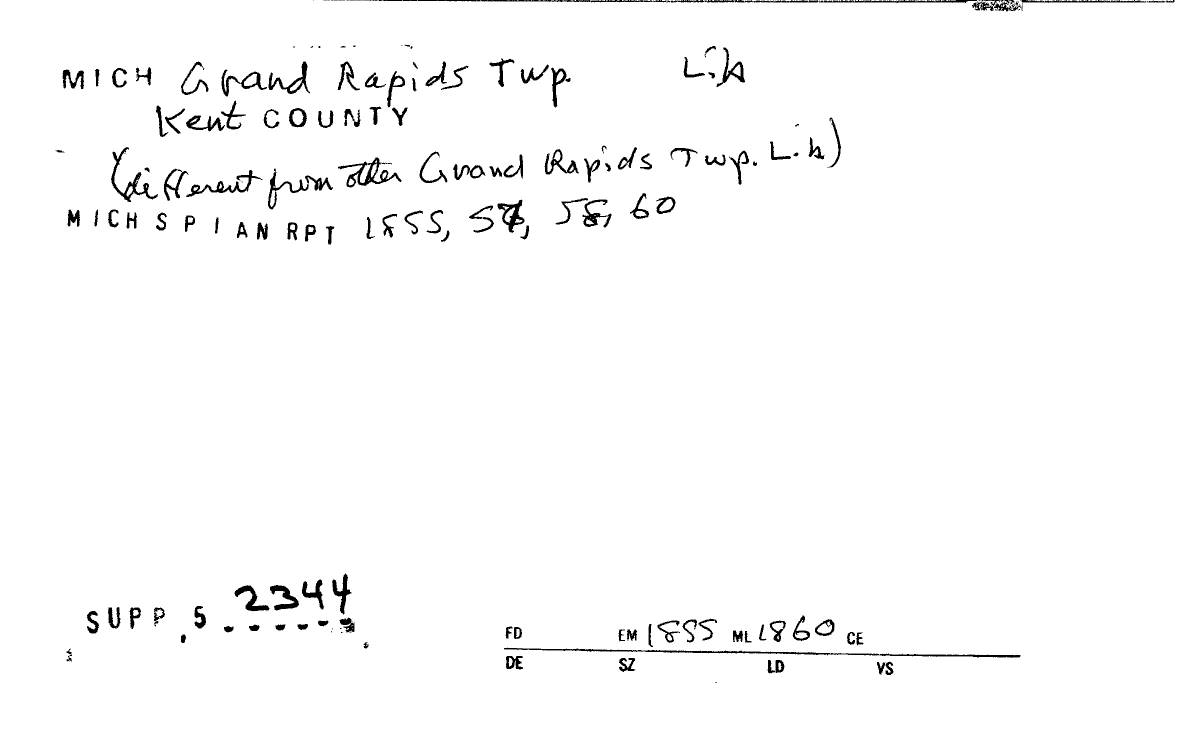 MICH Grand Rapids Twp. Lib
Kent COUNTY
(different from other Grand Rapids Twp. Lib)
MICH S P I AN RPT 1855, 58, 60
SUPP. 5 2344
FD EM 1855 ML 1860 CE
DE SZ LD VS